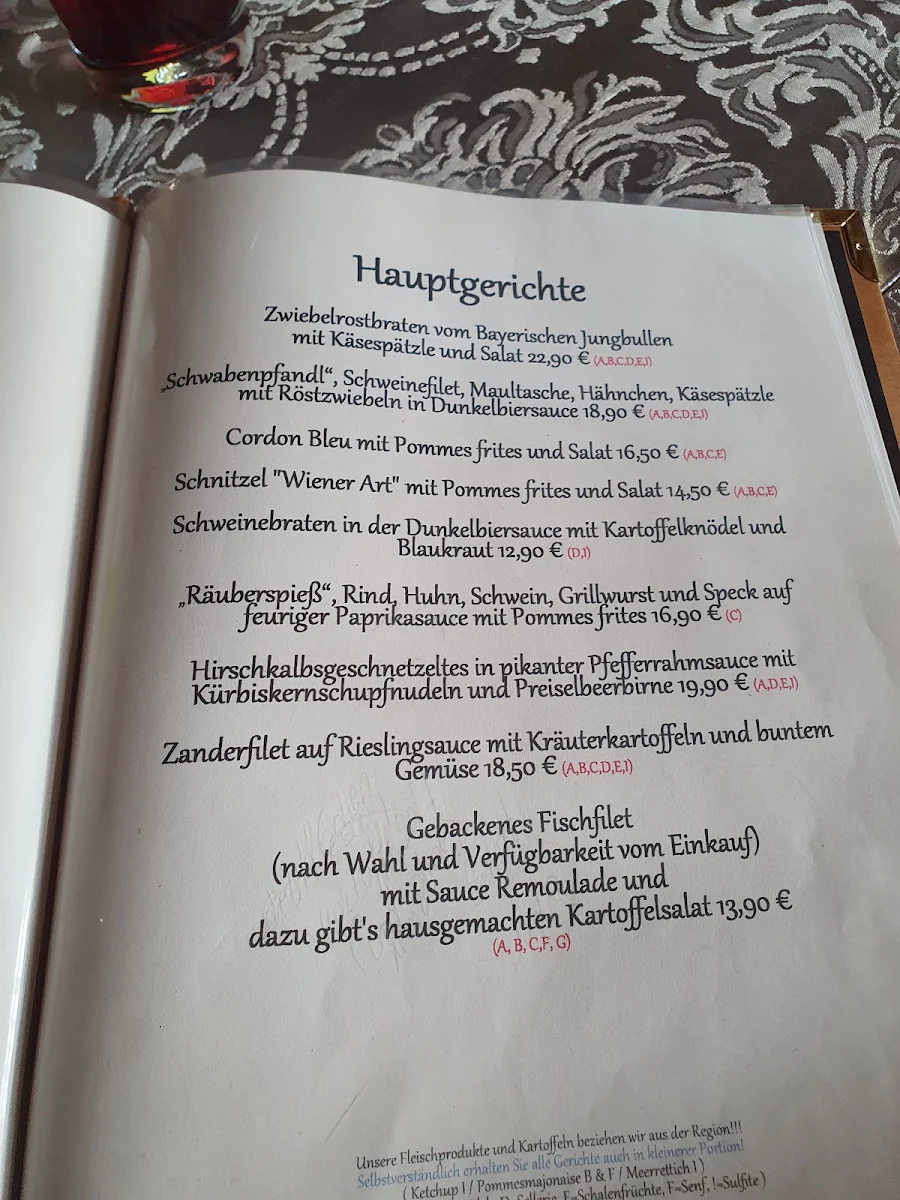 Hauptgerichte
Zwiebelrostbraten vom Bayerischen Jungbullen
mit Käsespätzle und Salat 22,90 € (A,B,C,D,E,I)
„Schwabenpfandl“, Schweinefilet, Maultasche, Hähnchen, Käsespätzle
mit Röstzwiebeln in Dunkelbiersauce 18,90 € (A,B,C,D,E,I)
Cordon Bleu mit Pommes frites und Salat 16,50 € (A,B,C,E)
Schnitzel "Wiener Art" mit Pommes frites und Salat 14,50 € (A,B,C,E)
Schweinebraten in der Dunkelbiersauce mit Kartoffelknödel und
Blaukraut 12,90 € (D,I)
„Räuberspieß“, Rind, Huhn, Schwein, Grillwurst und Speck auf
feuriger Paprikasauce mit Pommes frites 16,90 € (C)
Hirschkalbsgeschnetzeltes in pikanter Pfefferrahmsauce mit
Kürbiskernschupfnudeln und Preiselbeerbirne 19,90 € (A,D,E,I)
Zanderfilet auf Rieslingsauce mit Kräuterkartoffeln und buntem
Gemüse 18,50 € (A,B,C,D,E,I)
Gebackenes Fischfilet
(nach Wahl und Verfügbarkeit vom Einkauf)
mit Sauce Remoulade und
dazu gibt's hausgemachten Kartoffelsalat 13,90 €
(A, B, C,F, G)
Unsere Fleischprodukte und Kartoffeln beziehen wir aus der Region!!!
Selbstverständlich erhalten Sie alle Gerichte auch in kleinerer Portion!
( Ketchup I / Pommesmajonaise B & F / Meerrettich I )
E=Schalenfrüchte, F=Senf, !=Sulfite )